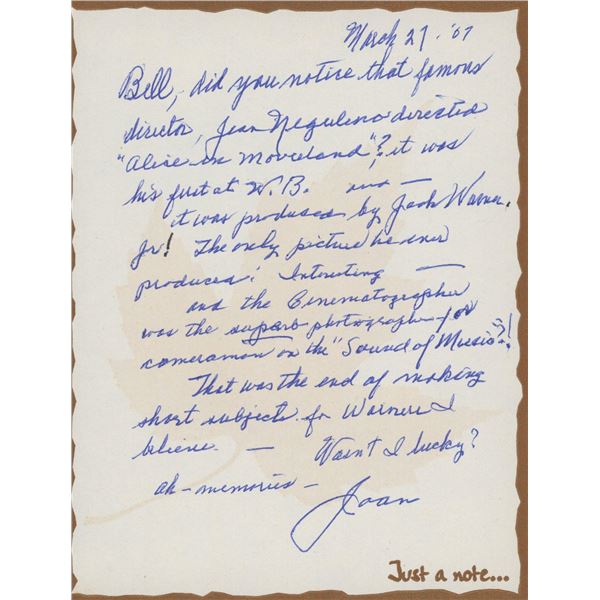 March 27 - '07
Bell, did you notice that famous
director, Jean Negulesco directed
"Alice in Movieland"? it was
his first at W.B. and —
it was produced by Jack Warner,
Jr! The only picture he ever
produced! Interesting —
and the Cinematographer
was the superb photographer for
cameraman on the "Sound of Music"!
That was the end of making
short subjects for Warners I
believe. — Wasn't I lucky?
ah - memories -
Joan
Just a note...